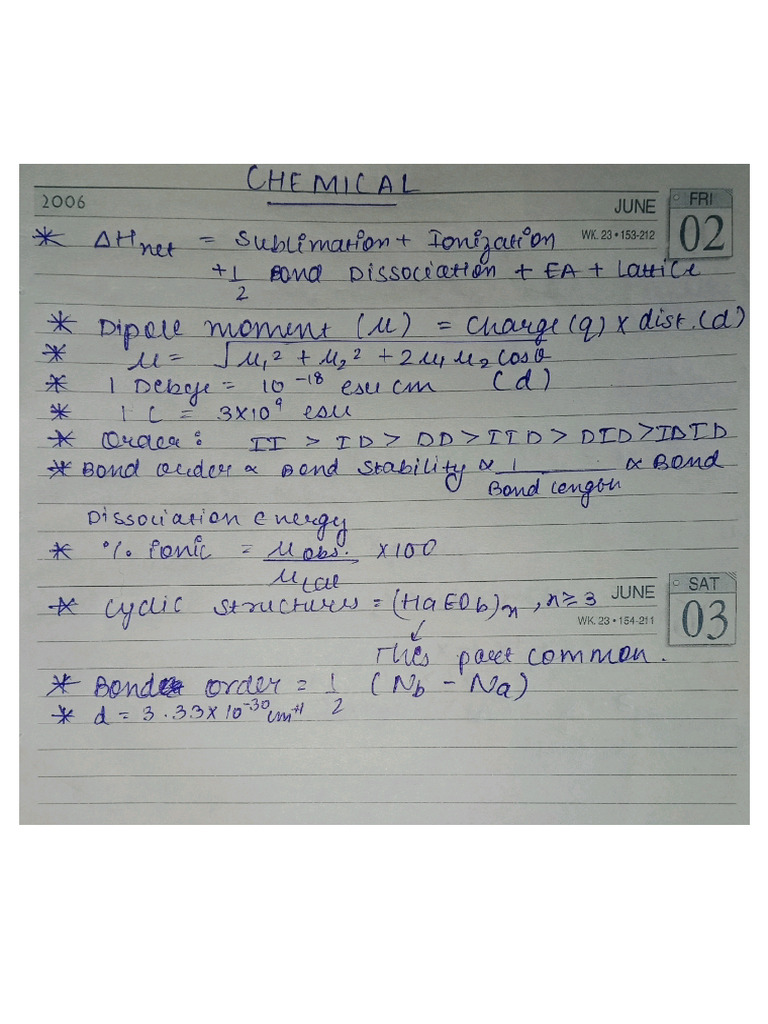 CHEMICAL
2006 JUNE FRI 02
WK. 23 • 153-212
* ΔHnet = Sublimation + Ionization
+ 1/2 Bond Dissociation + EA + Lattice
* Dipole moment (μ) = Charge(q) × dist.(d)
* μ = √μ₁² + μ₂² + 2μ₁ μ₂ cosθ
* 1 Debye = 10⁻¹⁸ esu cm (d)
* 1 C = 3×10⁹ esu
* Order: II > ID > DD > IID > DID > IDID
* Bond order ∝ Bond Stability ∝ 1/Bond length ∝ Bond
Dissociation energy
* % ionic = μobs./μcal × 100
* Cyclic structures = (HaEOb)n, n ≥ 3
JUNE SAT 03
WK. 23 • 154-211
↙
This part common.
* Bond order = 1/2 (Nb - Na)
* d = 3.33×10⁻³⁰ cm⁺¹